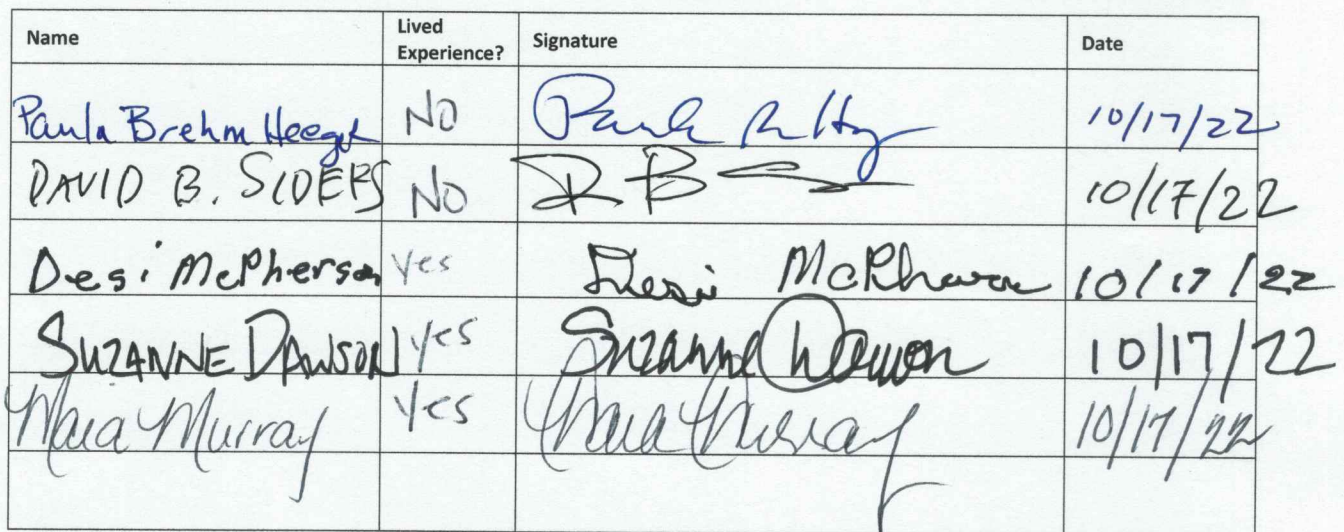 Name Lived Experience? Signature Date
Paula Brehm Heeger No 10/17/22
DAVID B. SIDERS No D B 10/17/22
Desi McPherson yes Desi 10/17/22
SUZANNE DAWSON yes Suzanne Dawson 10/17/22
Murray yes Murray 10/17/22